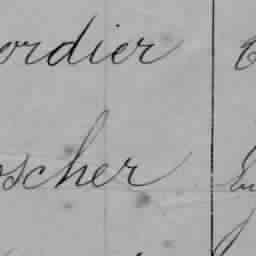 ordier
oscher